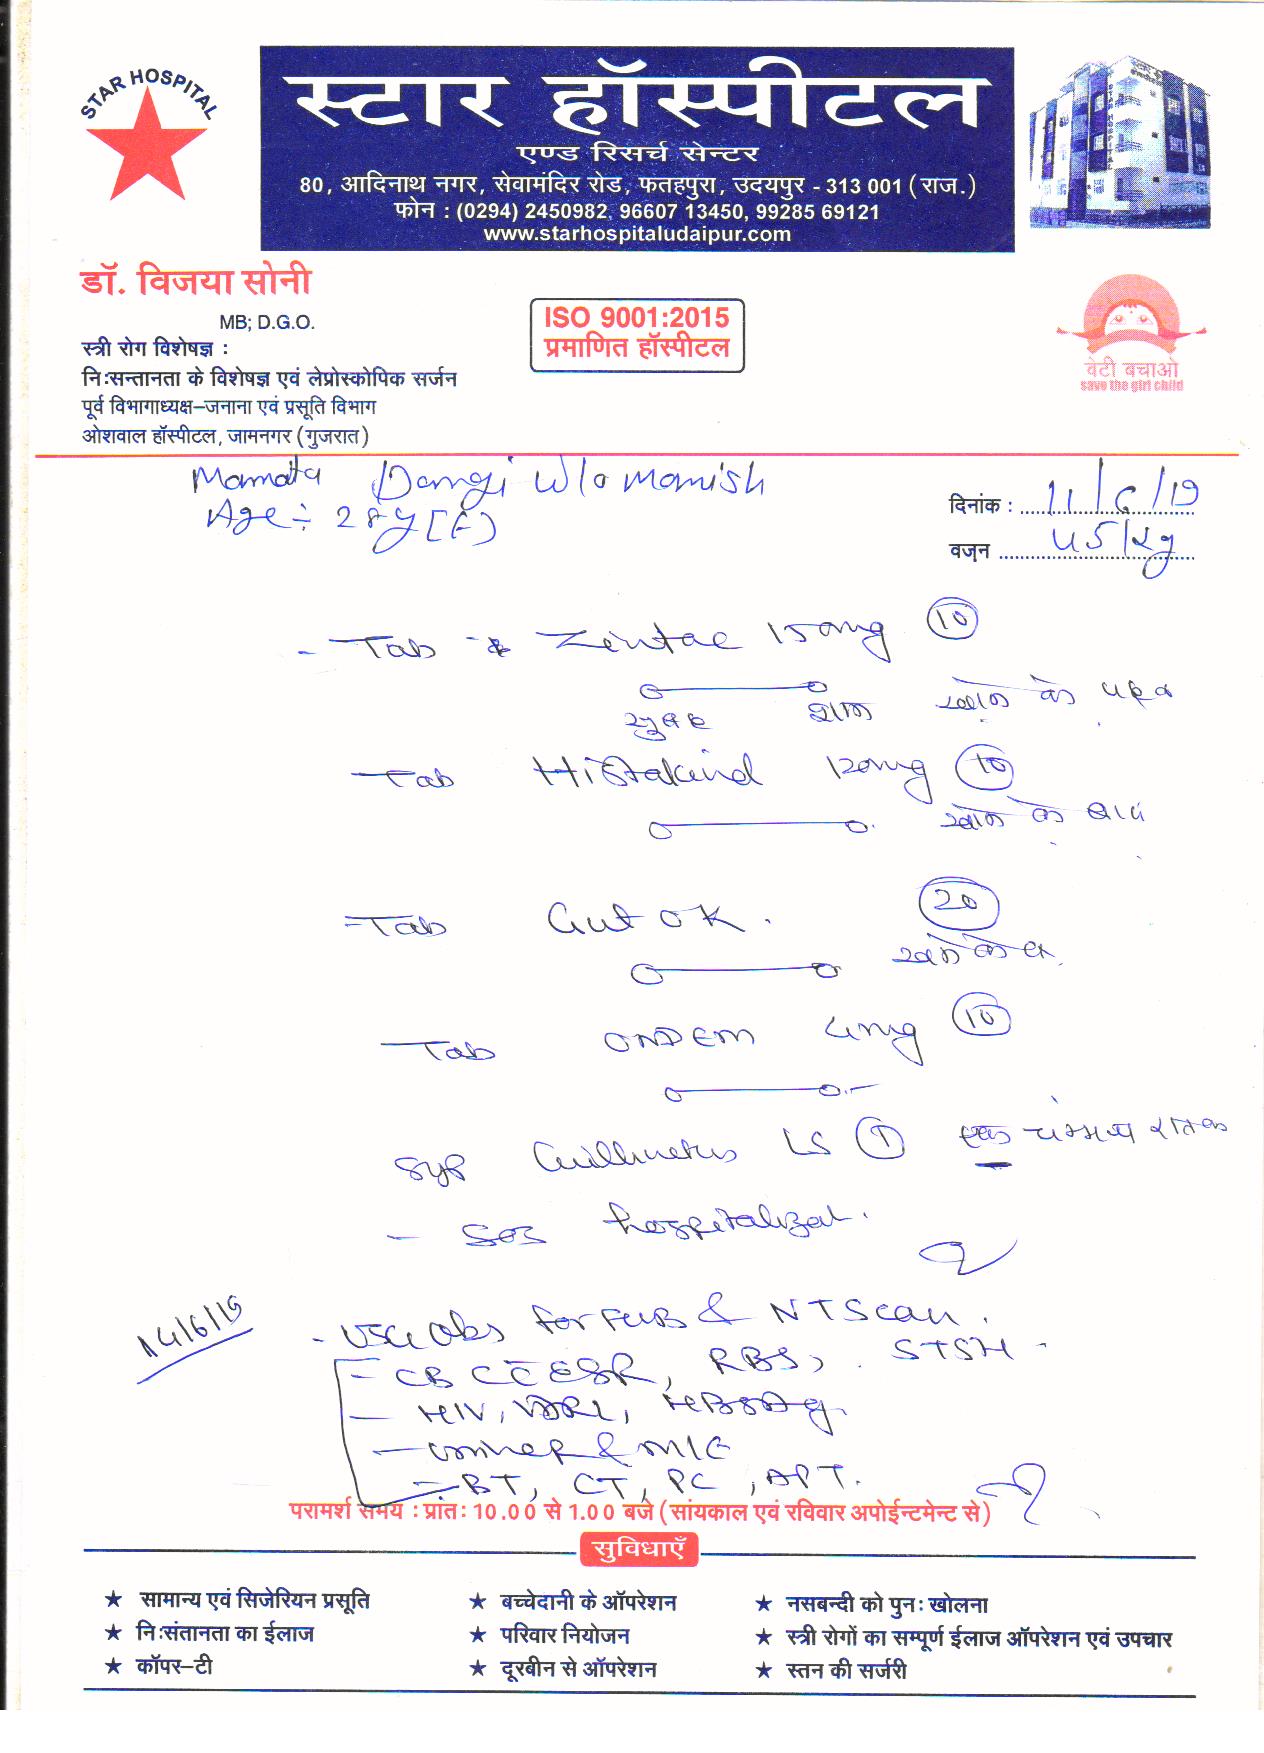 STAR HOSPITAL
स्टार हॉस्पीटल
एण्ड रिसर्च सेन्टर
80, आदिनाथ नगर, सेवामंदिर रोड, फतहपुरा, उदयपुर - 313 001 (राज.)
फोन : (0294) 2450982, 96607 13450, 99285 69121
www.starhospitaludaipur.com
डॉ. विजया सोनी
MB; D.G.O.
स्त्री रोग विशेषज्ञ :
निःसन्तानता के विशेषज्ञ एवं लेप्रोस्कोपिक सर्जन
पूर्व विभागाध्यक्ष–जनाना एवं प्रसूति विभाग
ओशवाल हॉस्पीटल, जामनगर (गुजरात)
ISO 9001:2015
प्रमाणित हॉस्पीटल
बेटी बचाओ
save the girl child
Mamata Dangi W/o Manish
Age÷ 28y (F)
दिनांक : 11/6/19
वज़न 45/kg
- Tab Zintac 150mg 10
सुबह शाम खाने के पहले
- Tab Histakind 120mg 10
खाने के बाद
- Tab Gut OK. 20
खाने के
- Tab ONDEM 4mg 10
Syp LS 1 एक चम्मच
- SOS hospitalizat.
14/6/19
- USG Obs for FWB & NT Scan.
- CBC C̄ ESR, RBS, STSH
- HIV, VDRL, HBSAg.
- Urine R & M/E
- BT, CT, PC, APT.
परामर्श समय : प्रातः 10.00 से 1.00 बजे (सांयकाल एवं रविवार अपोईन्टमेन्ट से)
सुविधाएँ
★ सामान्य एवं सिजेरियन प्रसूति ★ बच्चेदानी के ऑपरेशन ★ नसबन्दी को पुनः खोलना
★ निःसंतानता का ईलाज ★ परिवार नियोजन ★ स्त्री रोगों का सम्पूर्ण ईलाज ऑपरेशन एवं उपचार
★ कॉपर–टी ★ दूरबीन से ऑपरेशन ★ स्तन की सर्जरी